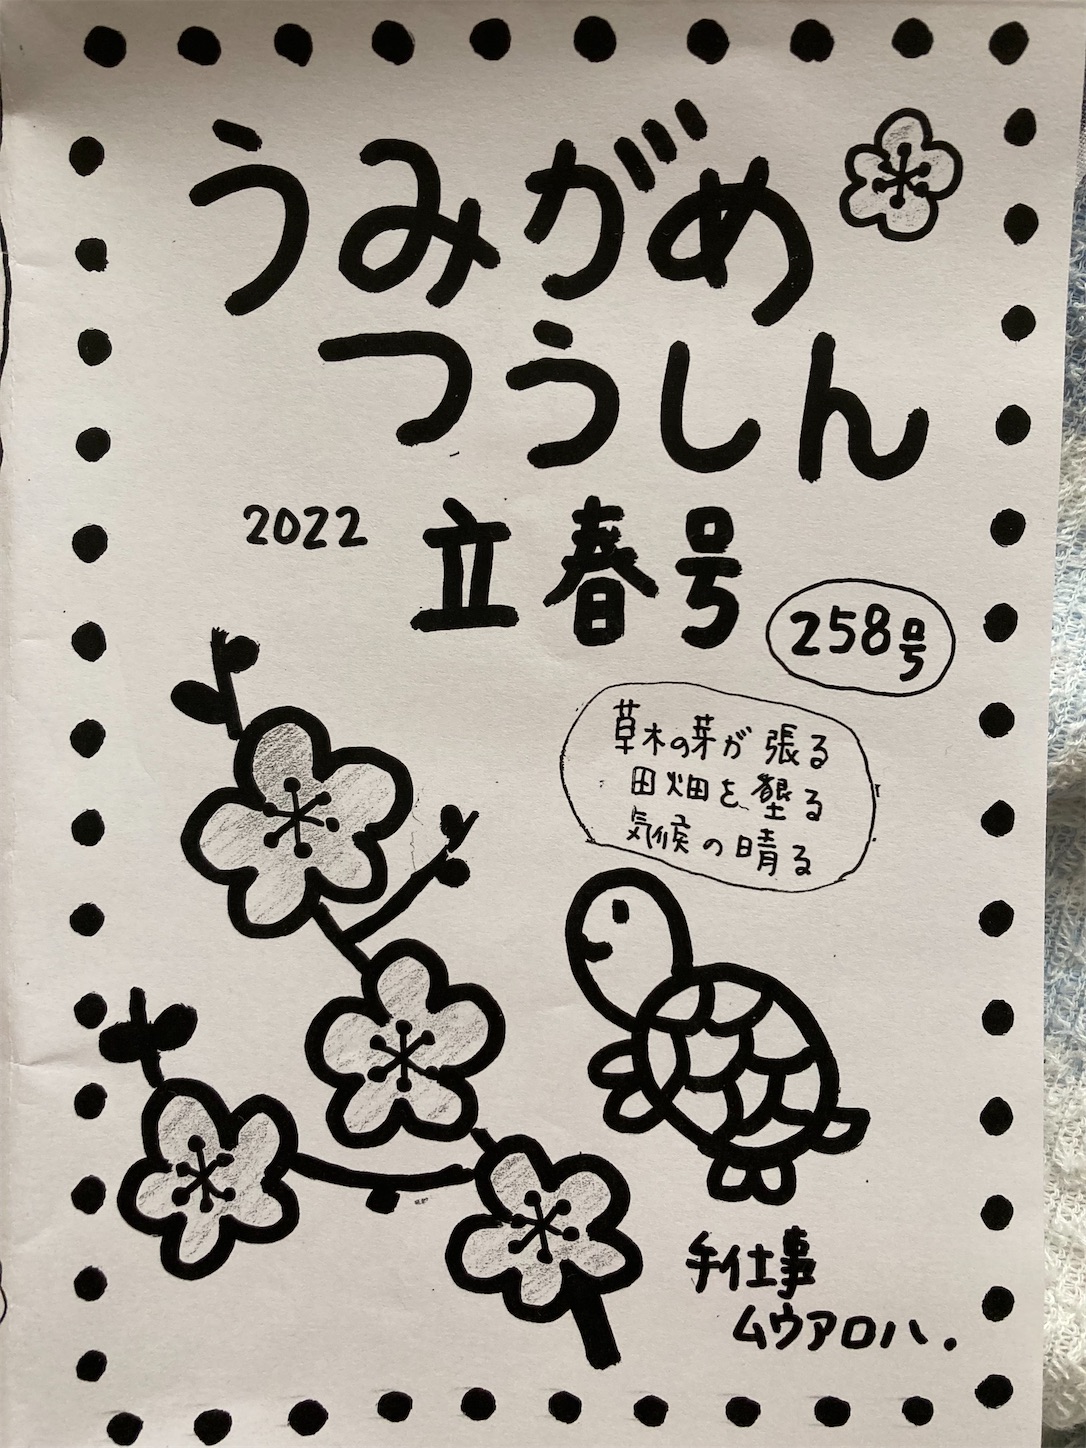 うみがめ
つうしん
2022 立春号
258号
草木の芽が 張る
田畑を 墾る
気候の晴る
手仕事
ムウアロハ.